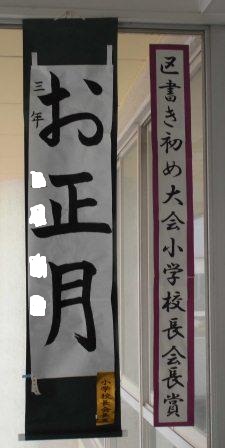 区書き初め大会小学校長会長賞
三年
お正月
小学校長会長賞